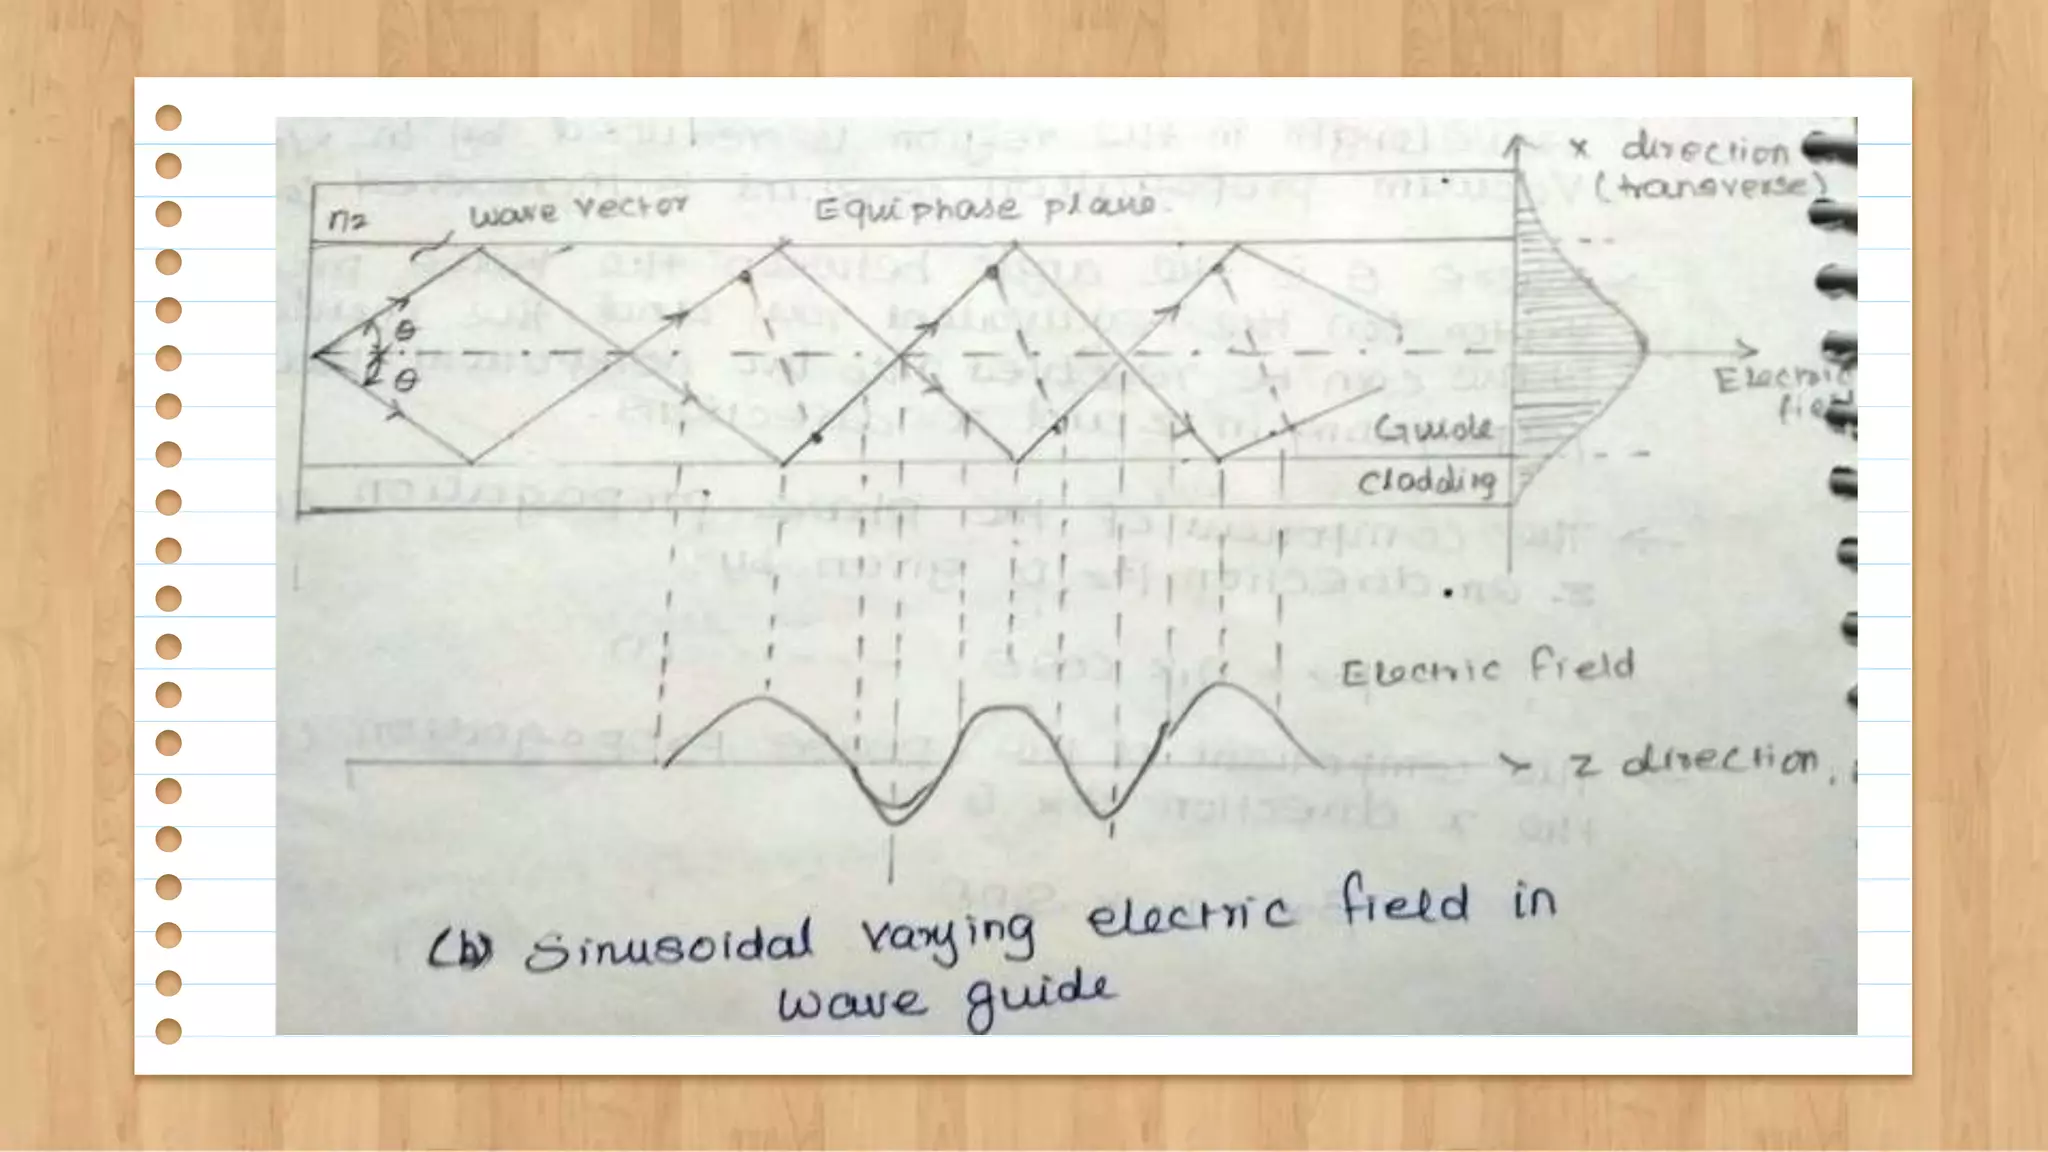 x direction
(transverse)
n2 wave vector Equiphase plane.
θ
θ
Electric
field
Guide
Cladding
Electric field
z direction.
(b) Sinusoidal varying electric field in
wave guide